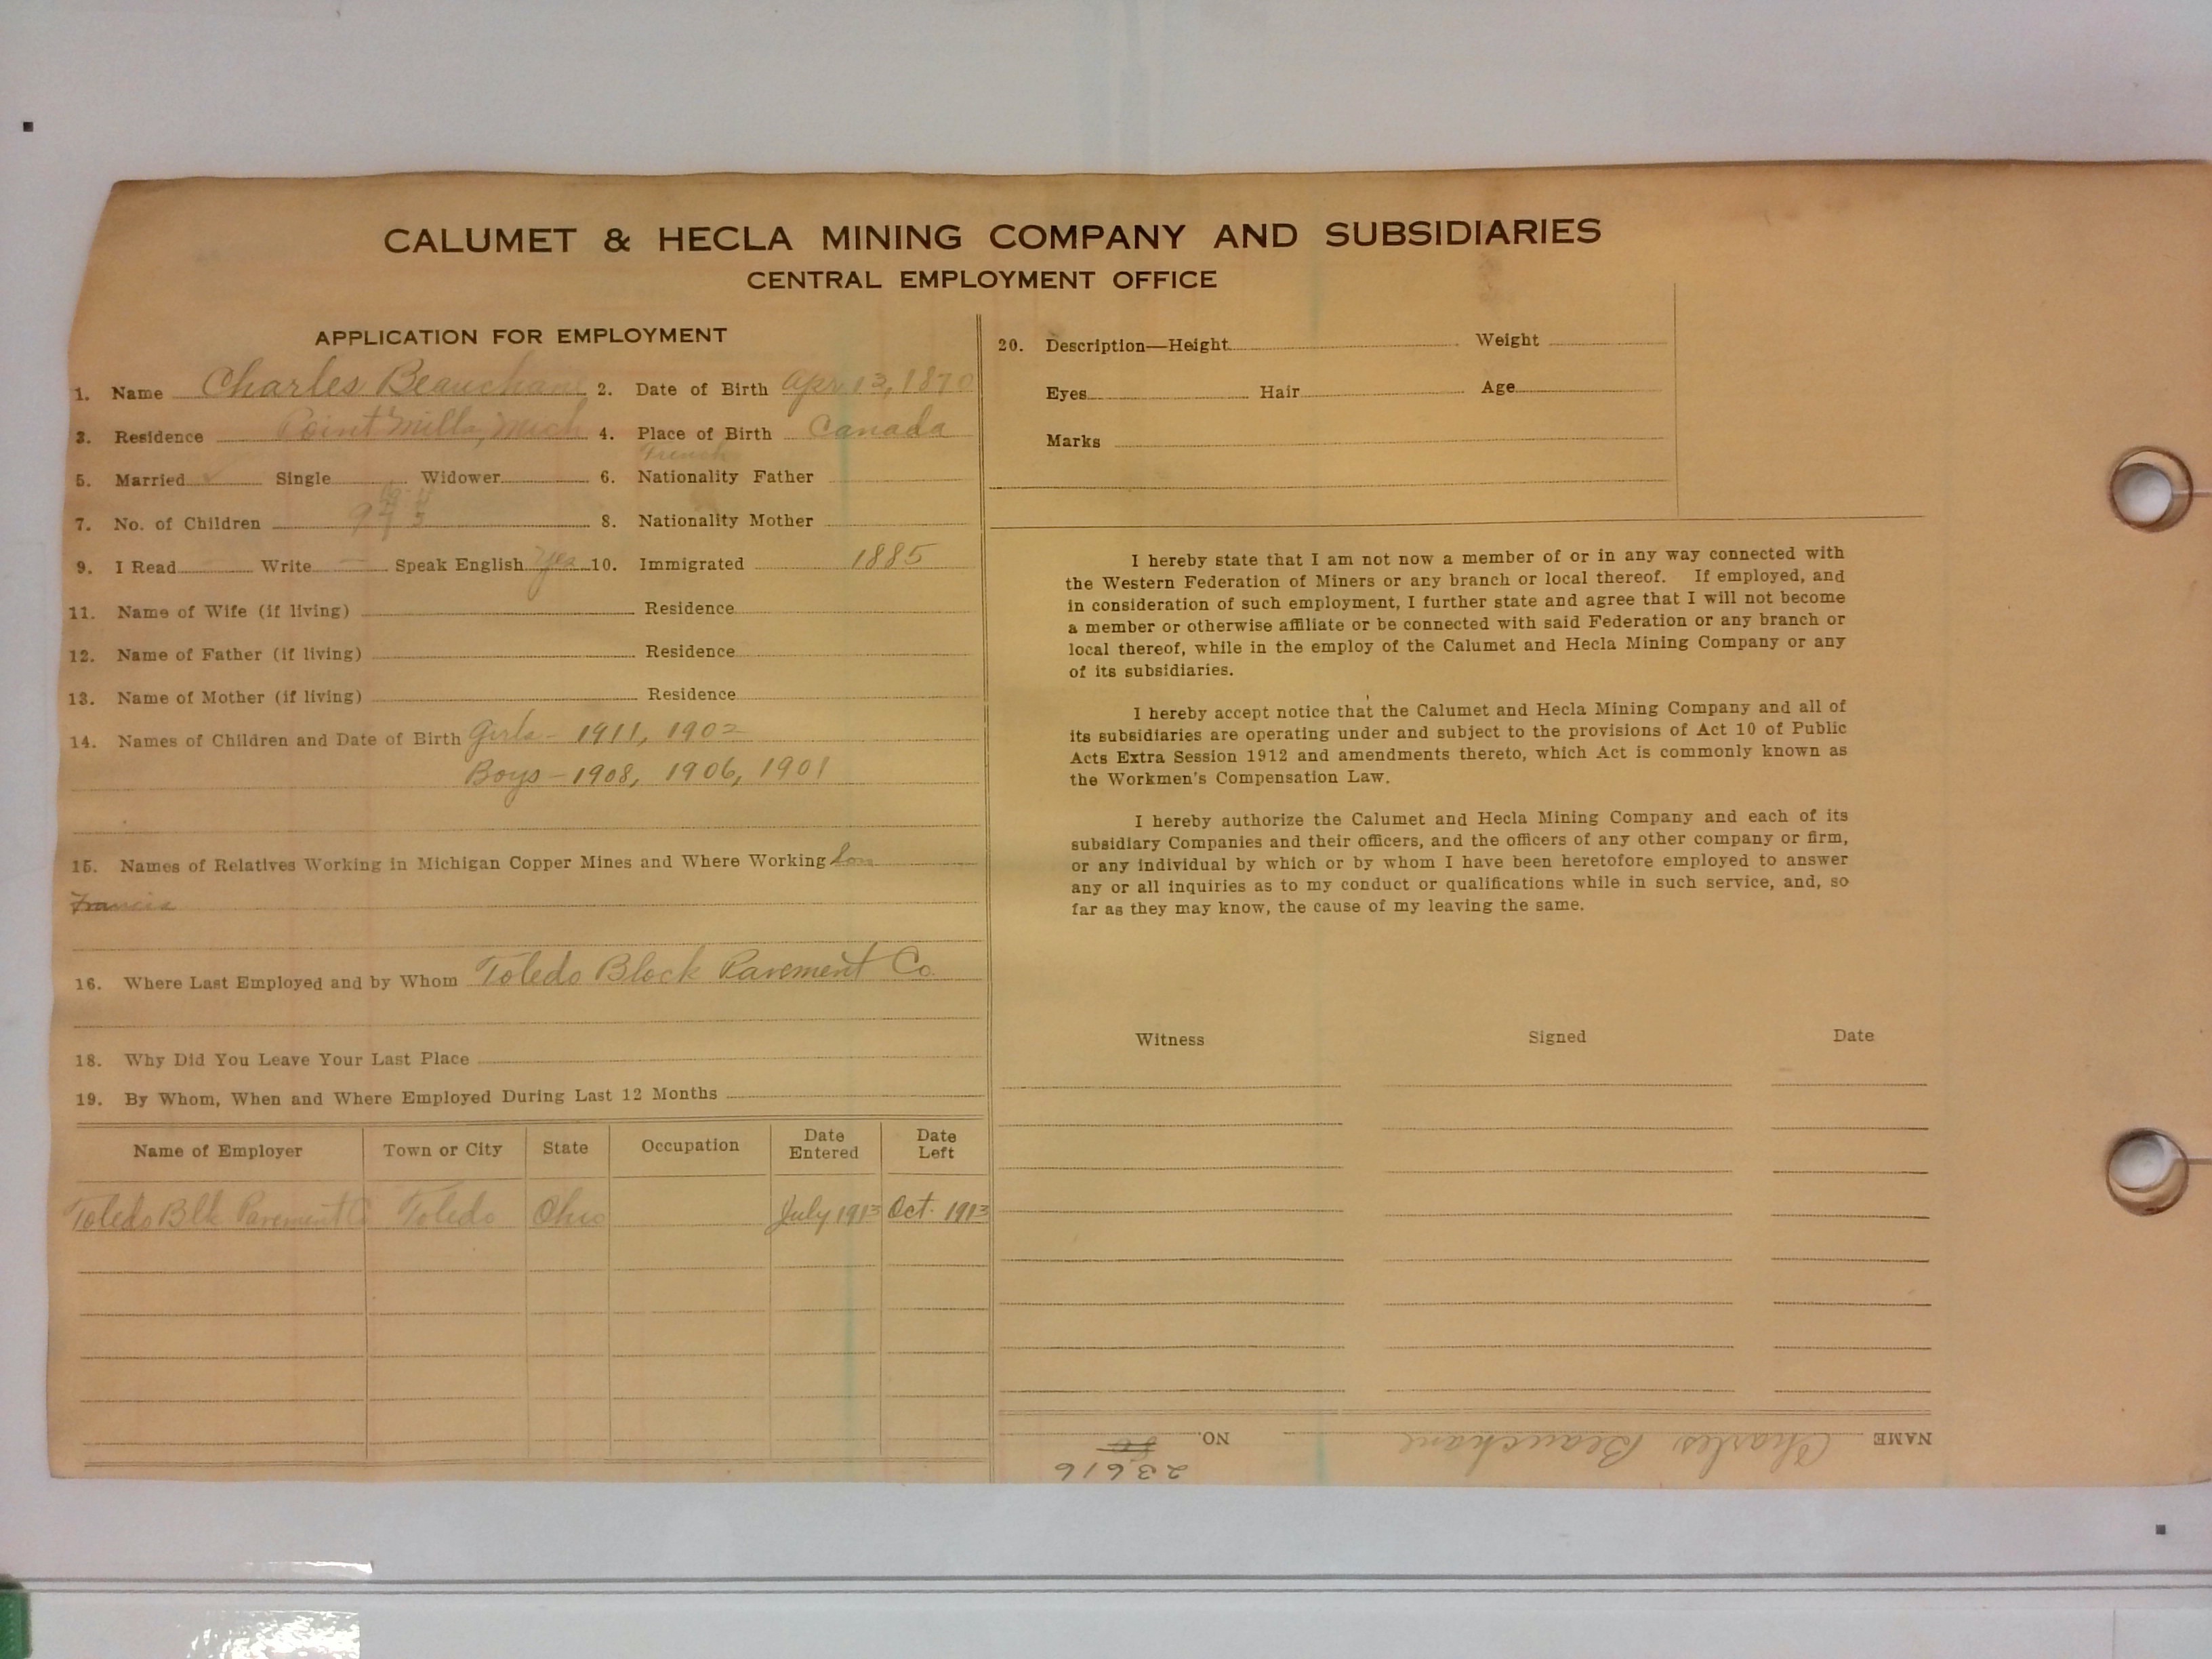 CALUMET & HECLA MINING COMPANY AND SUBSIDIARIES
CENTRAL EMPLOYMENT OFFICE
APPLICATION FOR EMPLOYMENT
1. Name Charles Beauchane 2. Date of Birth Apr. 13, 1870
3. Residence Point Mills, Mich 4. Place of Birth Canada
French
5. Married ✓ Single Widower 6. Nationality Father
7. No. of Children 9 8. Nationality Mother
9. I Read — Write — Speak English Yes 10. Immigrated 1885
11. Name of Wife (if living) Residence
12. Name of Father (if living) Residence
13. Name of Mother (if living) Residence
14. Names of Children and Date of Birth Girls - 1911, 1902
Boys - 1908, 1906, 1901
15. Names of Relatives Working in Michigan Copper Mines and Where Working Son
Francis
16. Where Last Employed and by Whom Toledo Block Pavement Co.
18. Why Did You Leave Your Last Place
19. By Whom, When and Where Employed During Last 12 Months
Name of Employer Town or City State Occupation Date Entered Date Left
Toledo Blk Pavement Co Toledo Ohio July 1913 Oct. 1913
20. Description—Height Weight
Eyes Hair Age
Marks
I hereby state that I am not now a member of or in any way connected with
the Western Federation of Miners or any branch or local thereof. If employed, and
in consideration of such employment, I further state and agree that I will not become
a member or otherwise affiliate or be connected with said Federation or any branch or
local thereof, while in the employ of the Calumet and Hecla Mining Company or any
of its subsidiaries.
I hereby accept notice that the Calumet and Hecla Mining Company and all of
its subsidiaries are operating under and subject to the provisions of Act 10 of Public
Acts Extra Session 1912 and amendments thereto, which Act is commonly known as
the Workmen's Compensation Law.
I hereby authorize the Calumet and Hecla Mining Company and each of its
subsidiary Companies and their officers, and the officers of any other company or firm,
or any individual by which or by whom I have been heretofore employed to answer
any or all inquiries as to my conduct or qualifications while in such service, and, so
far as they may know, the cause of my leaving the same.
Witness Signed Date
NAME Charles Beauchane NO.
23616